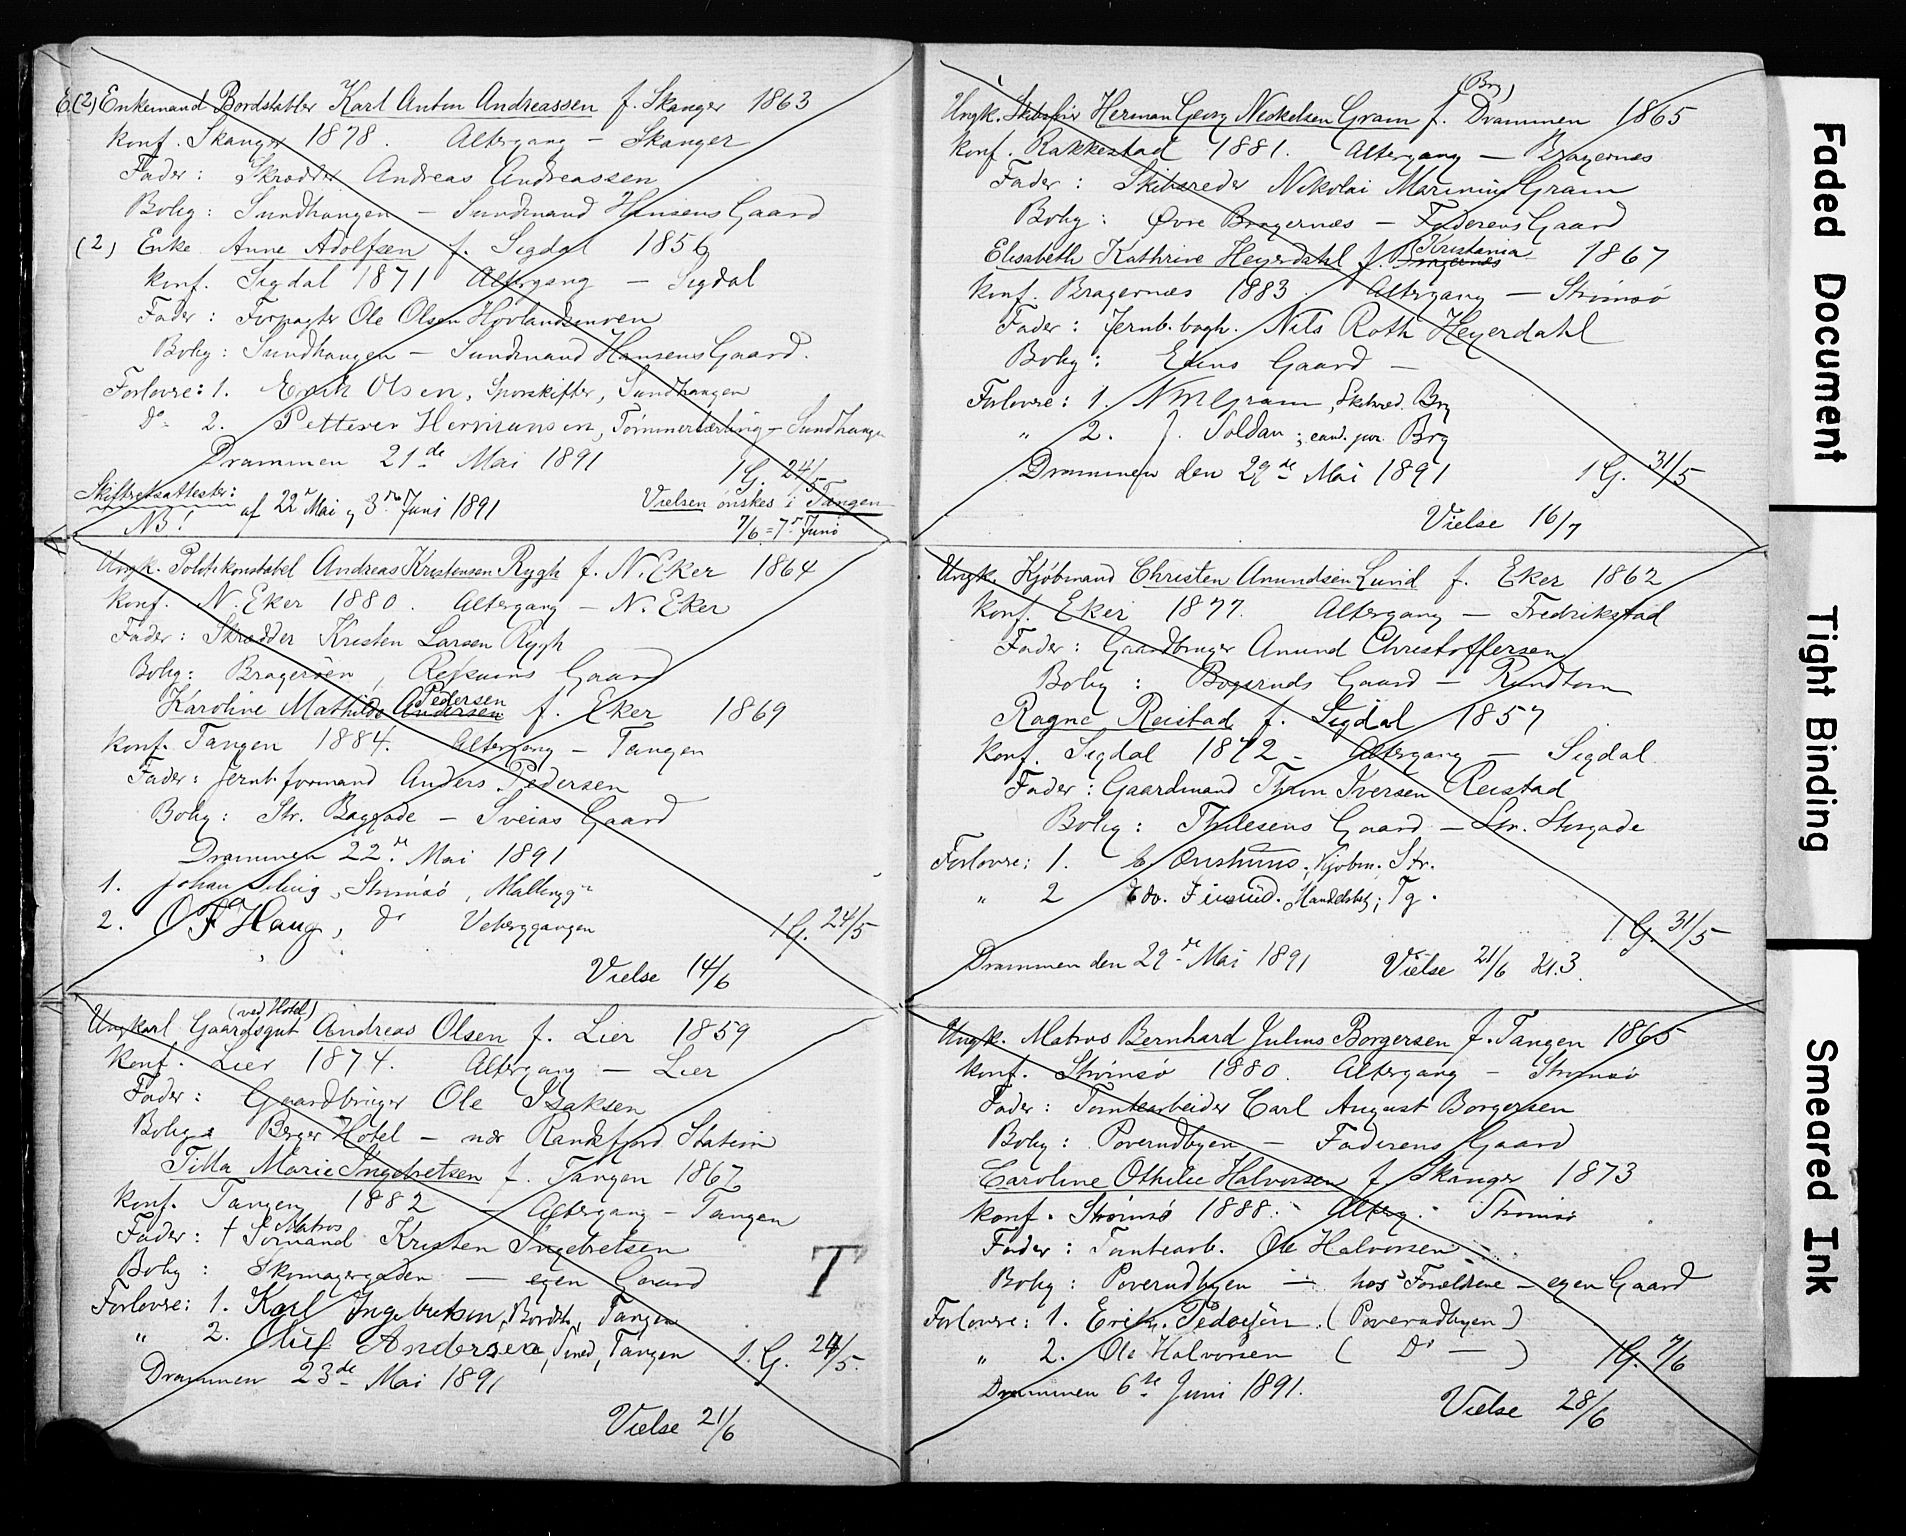 E.(2) Enkemand Bordstabler Karl Anton Andreassen f. Skanger 1863
konf. Skanger 1878. Altergang – Skanger
Fader: Skrædder Andreas Andreassen
Bolig: Sundhaugen – Sundmand Hansens Gaard
(2) Enke Anne Adolfsen f. Sigdal 1856
konf. Sigdal 1871 Altergang – Sigdal
Fader: Forpagter Ole Olsen
Bolig: Sundhaugen – Sundmand Hansens Gaard.
Forlovre: 1. Erik Olsen, Sporskifter, Sundhaugen
do 2. Petter Hermansen, – Sundhaugen
Drammen 21de Mai 1891 1 G. 24/5
Skifteretsattester: af 22 Mai og 3 Juni 1891 Vielsen ønskes i Tangen
NB! 7/6 = 7 Juni
Ungk. Politikonstabel Andreas Kristensen Rygh f. N. Eker 1864
konf. N. Eker 1880. Altergang – N. Eker
Fader: Skrædder Kristen Larsen Rygh
Bolig: Bragerøen, Gaard
Pedersen
Karoline Mathilde Andersen f. Eker 1869
konf. Tangen 1884. Altergang – Tangen
Fader: Jernb. formand Anders Pedersen
Bolig: Str. Baggade – Sveias Gaard
Drammen 22 Mai 1891
1. Johan Strømsø,
2. O F Haug, do 1 G. 24/5
Vielse 14/6
(ved Hotel)
Ungkarl Gaardsgut Andreas Olsen f. Lier 1859
konf. Lier 1874. Altergang – Lier
Fader: Gaardbruger Ole Isaksen
Bolig: Berger Hotel – nær Station
Tilla Marie Ingebretsen f. Tangen 1867
konf. Tangen 1882 – Altergang – Tangen
Matros
Fader: † Sømand Kristen Ingebretsen
Bolig: Skomagergaden – egen Gaard
T
Forlovre: 1. Karl Ingebretsen, Bordst., Tangen
" 2. Oluf Andersen, Tangen 1. G. 24/5.
Drammen 23de Mai 1891
Vielse 21/6
(Brg)
Ungk. Skibsfører Herman Georg Gram f. Drammen 1865
konf. Rakkestad 1881. Altergang – Bragernes
Fader: Skibsreder Nikolai Gram
Bolig: Øvre Bragernæs – Faderens Gaard
Kristania
Elisabeth Kathrine Heyerdahl f. Bragernes 1867
konf. Bragernæs 1883. Altergang – Strømsø
Fader: Jernb. bogh. Nils Roth Heyerdahl
Bolig: Gaard –
Forlovre: 1. N M Gram, Skibsred. Brg
" 2. J. Soldan; cand. jur. Brg
Drammen den 29de Mai 1891 1 G. 31/5
Vielse 16/7
Ungk. Kjøbmand Christen Amundsen Lund f. Eker 1862
konf. Eker 1877. Altergang – Fredrikstad
Fader: Gaardbruger Amund Christoffersen
Bolig: Gaard – Rundtom
Ragne Reistad f. Sigdal 1857
konf. Sigdal 1872 – Altergang – Sigdal
Fader: Gaardmand Iversen Reistad
Bolig: Gaard – Str. Storgade
Forlovre: 1. Kjøbm. Str.
" 2 Edv. Handelsbetj; Tg.
1. G. 31/5
Drammen den 29de Mai 1891 Vielse 21/6 Kl. 3.
Ungk. Matros Bernhard Julius Borgersen f. Tangen 1865
konf. Strømsø 1880. Altergang – Strømsø
Fader: Tomtearbeider Carl August Borgersen
Bolig: Poverudbyen – Faderens Gaard
Caroline Othilie Halvorsen f. Skanger 1873
konf. Strømsø 1888. – Alterg. – Strømsø
Fader: Tomtearb. Ole Halvorsen –
Bolig: Poverudbyen – hos Forældrene – egen Gaard
Forlovre: 1. Erik Pedersen (Poverudbyen)
" 2. Ole Halvorsen ( Do — ) 1 G. 7/6
Drammen 6te Juni 1891.
Vielse 28/6
Faded Document
Tight Binding
Smeared Ink